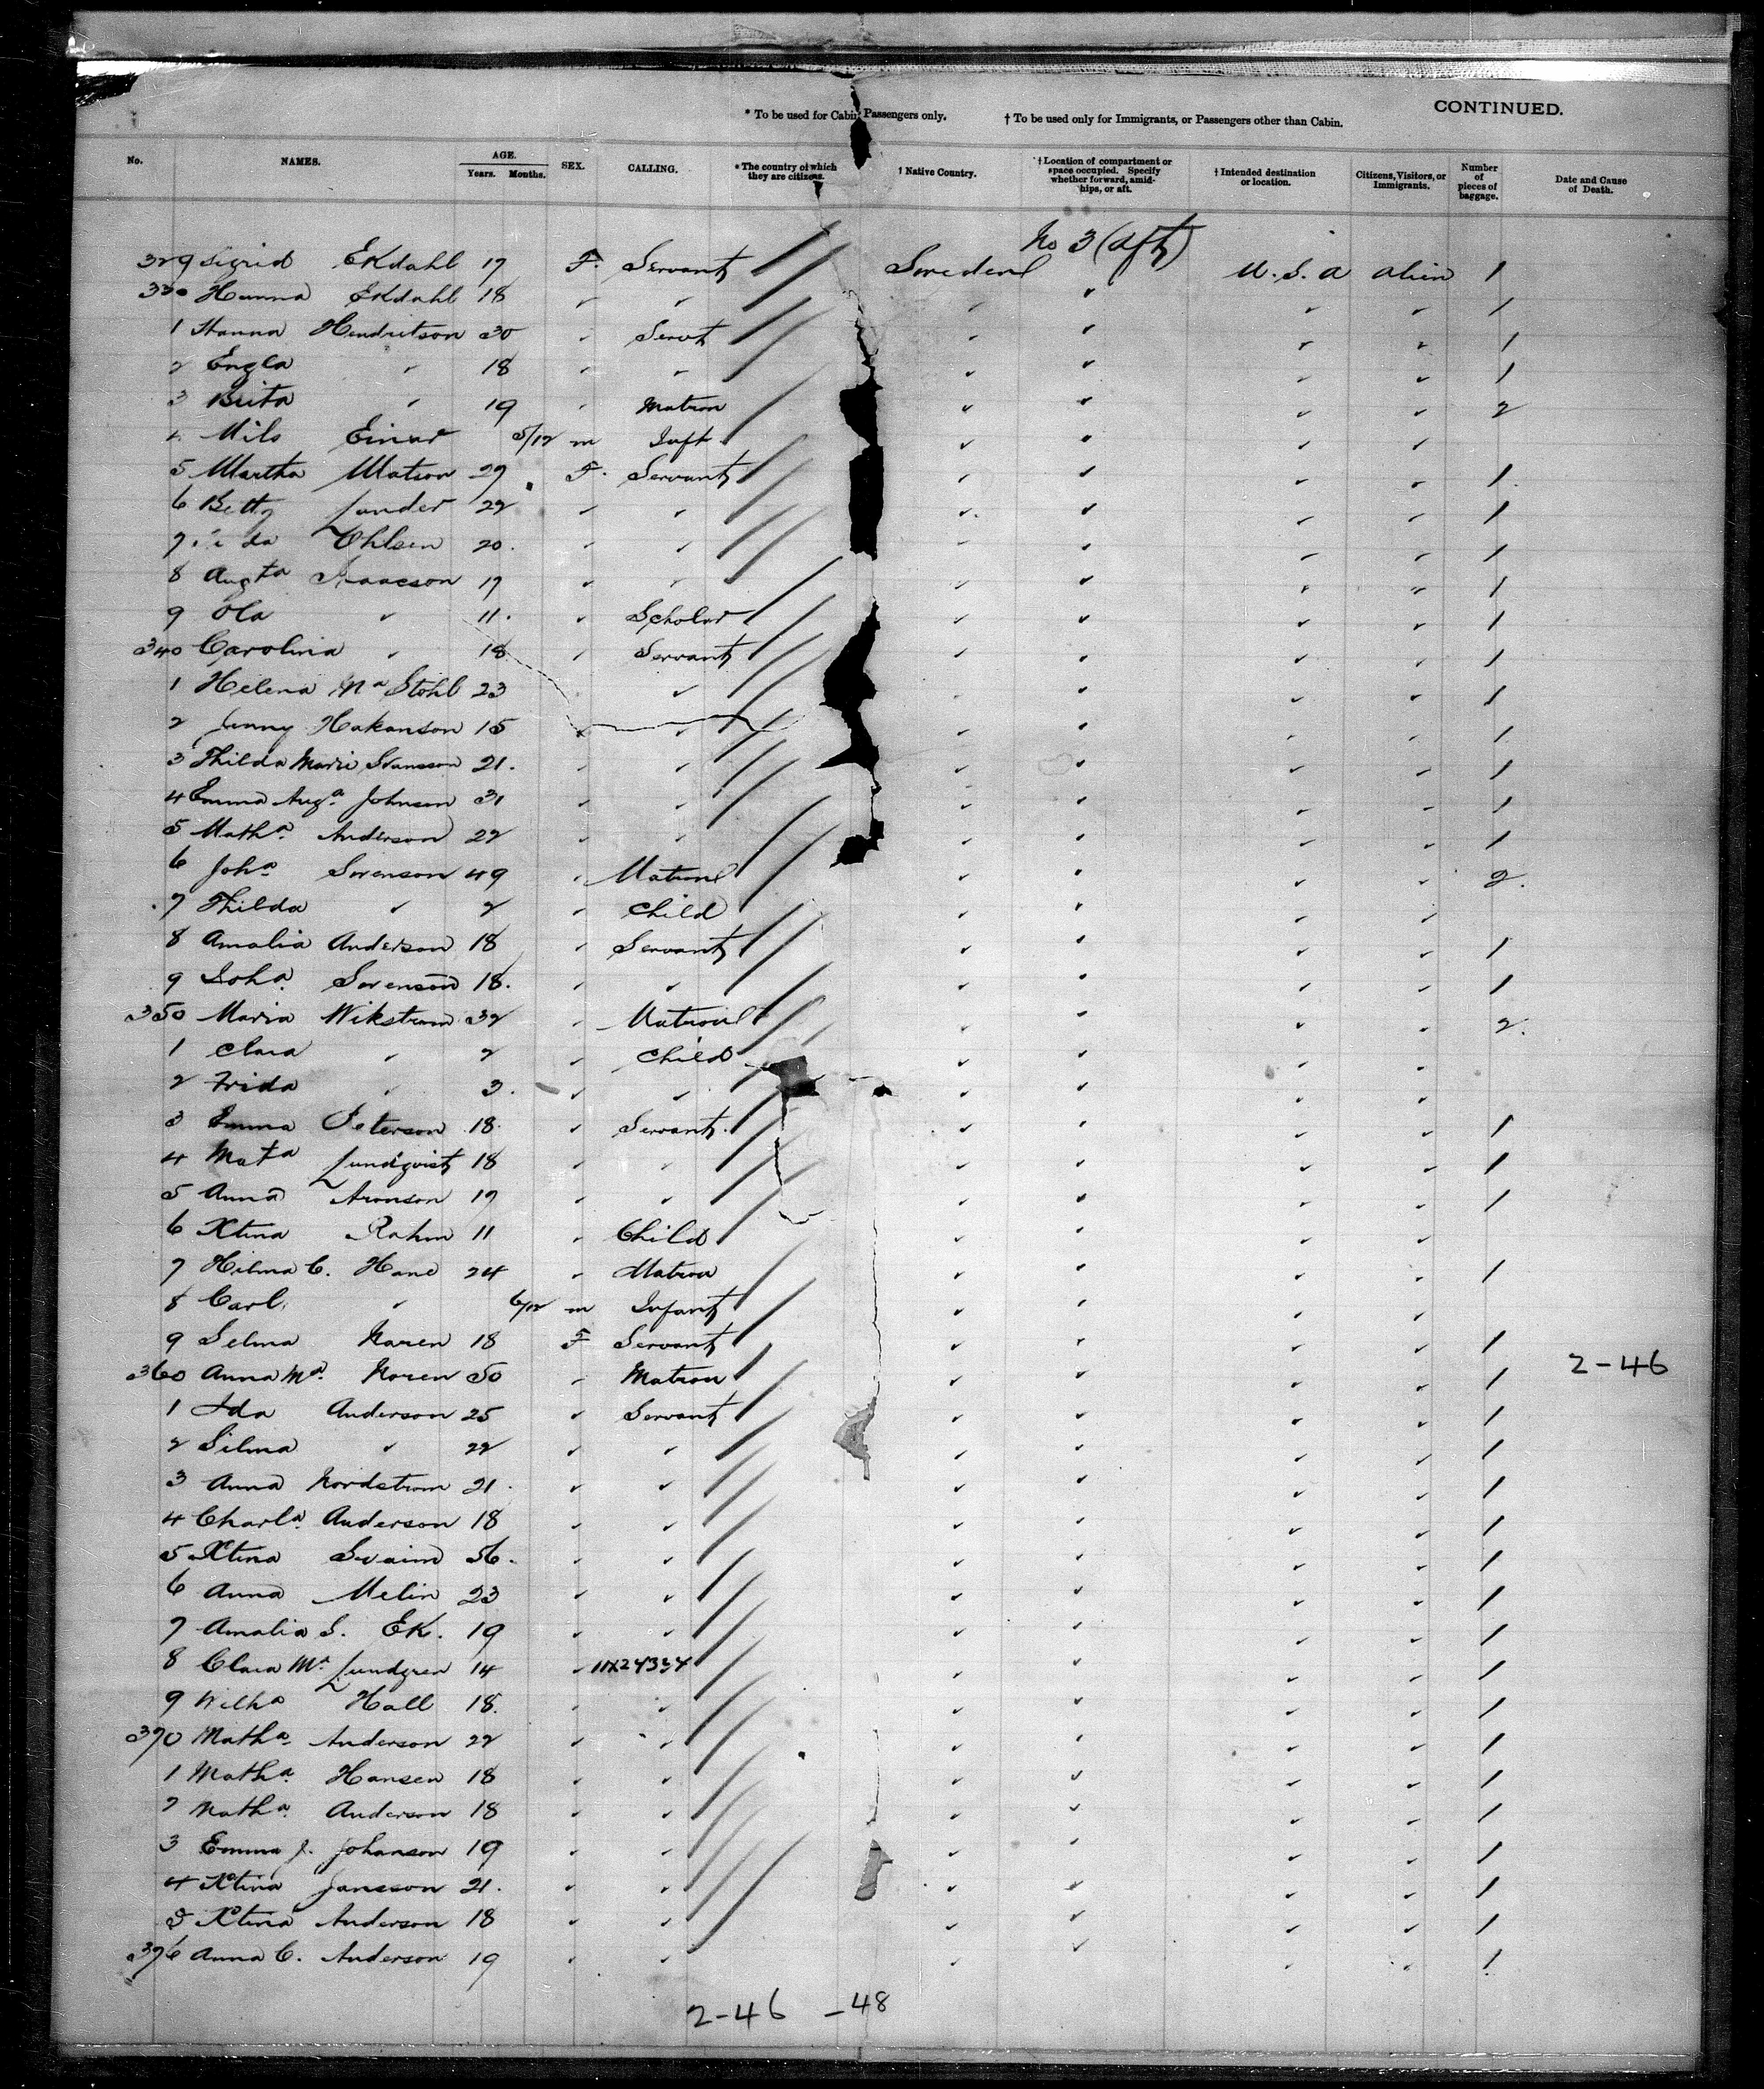 CONTINUED.
* To be used for Cabin Passengers only. † To be used only for Immigrants, or Passengers other than Cabin.
No. NAMES. AGE. Years. Months. SEX. CALLING. * The country of which they are citizens. † Native Country. † Location of compartment or space occupied. Specify whether forward, amidships, or aft. † Intended destination or location. Citizens, Visitors, or Immigrants. Number of pieces of baggage. Date and Cause of Death.
No 3 (aft)
329 Sigrid Ekdahl 17 F. Servant Sweden U.S.A Alien 1
330 Hanna Ekdahl 18 " " " " " " 1
1 Hanna Hendritson 30 " Servt " " " " 1
2 Engla " 18 " " " " " " 1
3 Brita " 19 " Matron " " " " 2
4 Nils Einar 5/12 m Inft " " " "
5 Martha Matson 27 F. Servant " " " " 1
6 Betty Lunder 22 " " " " " " 1
7 da Ohlsen 20 " " " " " " 1
8 Augta Isaacson 17 " " " " " " 1
9 Ola " 11 " Scholar " " " " 1
340 Carolina " 18 " Servant " " " " 1
1 Helena Ma Stohl 23 " " " " " 1
2 Jenny Hakanson 15 " " " " " " 1
3 Thilda Marie Svansson 21 " " " " " " 1
4 Emma Auga Johnson 31 " " " " " " 1
5 Matha Anderson 22 " " " " " " 1
6 Joha Sorenson 49 " Matron " " " " 2
7 Thilda " 2 " Child " " " "
8 Amalia Anderson 18 " Servant " " " " 1
9 Joha Sorenson 18 " " " " " " 1
350 Maria Wikstrom 32 " Matron " " " " 2
1 Clara " 2 " Child " " " "
2 Frida " 3 " " " " " "
3 Emma Peterson 18 " Servant " " " " 1
4 Mata Lundqvist 18 " " " " " " 1
5 Anna Aronson 17 " " " " " " 1
6 Xtina Rahm 11 " Child " " " "
7 Hilma C. Hand 24 " Matron " " " " 1
8 Carl " 6/12 m Infant " " " "
9 Selma Noren 18 F Servant " " " " 1
360 Anna Ma Noren 50 " Matron " " " " 1 2-46
1 Ida Anderson 25 " Servant " " " " 1
2 Silma " 22 " " " " " " 1
3 Anna Nordstrom 21 " " " " " " 1
4 Charla Anderson 18 " " " " " " 1
5 Xtina Svaim 56 " " " " " " 1
6 Anna Melin 23 " " " " " " 1
7 Amalia S. Ek. 19 " " " " " " 1
8 Clara Ma Lundgren 14 " " " " " 1
9 Wilha Hall 18 " " " " " " 1
370 Matha Anderson 22 " " " " " " 1
1 Matha Hansen 18 " " " " " " 1
2 Matha Anderson 18 " " " " " " 1
3 Emma J. Johanson 19 " " " " " " 1
4 Xtina Jansson 21 " " " " " " 1
5 Xtina Anderson 18 " " " " " " 1
376 Anna C. Anderson 19 " " " " " " 1
2-46 -48